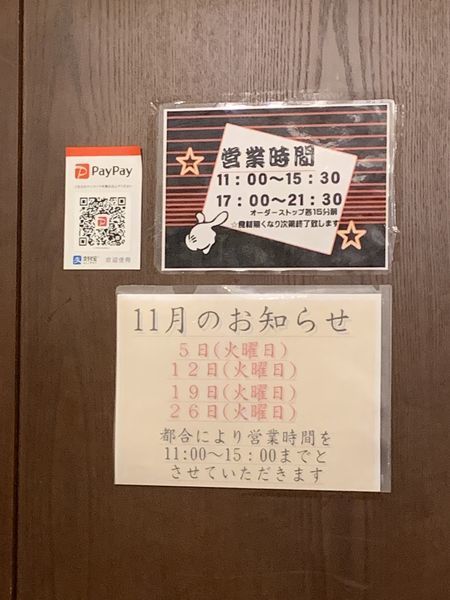 PayPay
支付宝
欢迎使用
営業時間
11：00〜15：30
17：00〜21：30
オーダーストップ各15分前
☆食材無くなり次第終了致します
11月のお知らせ
5日(火曜日)
12日(火曜日)
19日(火曜日)
26日(火曜日)
都合により営業時間を
11:00〜15：00までと
させていただきます